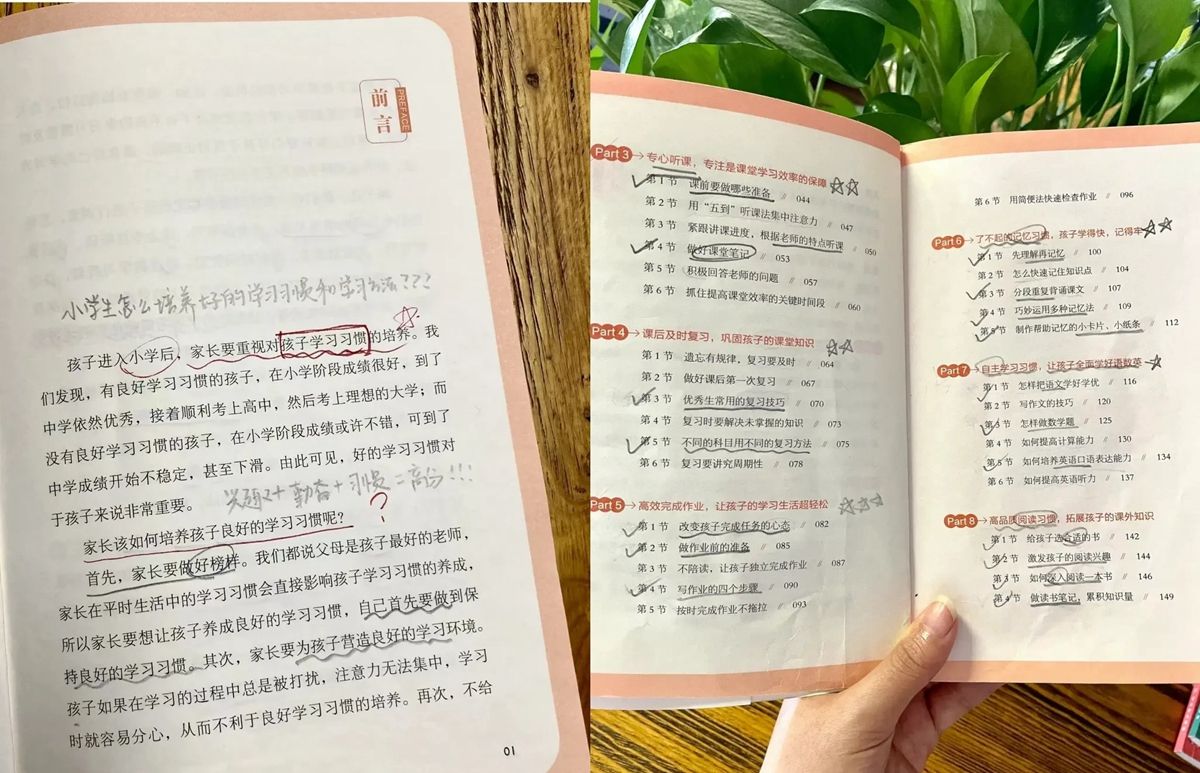 前言
PREFACE
小学生怎么培养好的学习习惯和学习方法???
孩子进入小学后，家长要重视对孩子学习习惯的培养。我
们发现，有良好学习习惯的孩子，在小学阶段成绩很好，到了
中学依然优秀，接着顺利考上高中，然后考上理想的大学；而
没有良好学习习惯的孩子，在小学阶段成绩或许不错，可到了
中学成绩开始不稳定，甚至下滑。由此可见，好的学习习惯对
于孩子来说非常重要。
+勤奋+习惯=高分!!!
家长该如何培养孩子良好的学习习惯呢？
?
首先，家长要做好榜样。我们都说父母是孩子最好的老师，
家长在平时生活中的学习习惯会直接影响孩子学习习惯的养成，
所以家长要想让孩子养成良好的学习习惯，自己首先要做到保
持良好的学习习惯。其次，家长要为孩子营造良好的学习环境。
孩子如果在学习的过程中总是被打扰，注意力无法集中，学习
时就容易分心，从而不利于良好学习习惯的培养。再次，不给
01
Part 3 专心听课，专注是课堂学习效率的保障
第1节 课前要做哪些准备 // 044
第2节 用“五到”听课法集中注意力 // 047
第3节 紧跟讲课进度，根据老师的特点听课 // 050
第4节 做好课堂笔记 // 053
第5节 积极回答老师的问题 // 057
第6节 抓住提高课堂效率的关键时间段 // 060
Part 4 课后及时复习，巩固孩子的课堂知识
第1节 遗忘有规律，复习要及时 // 064
第2节 做好课后第一次复习 // 067
第3节 优秀生常用的复习技巧 // 070
第4节 复习时要解决未掌握的知识 // 073
第5节 不同的科目用不同的复习方法 // 075
第6节 复习要讲究周期性 // 078
Part 5 高效完成作业，让孩子的学习生活超轻松
第1节 改变孩子完成任务的心态 // 082
第2节 做作业前的准备 // 085
第3节 不陪读，让孩子独立完成作业 // 087
第4节 写作业的四个步骤 // 090
第5节 按时完成作业不拖拉 // 093
第6节 用简便法快速检查作业 // 096
Part 6 了不起的记忆习惯，孩子学得快，记得牢
第1节 先理解再记忆 // 100
第2节 怎么快速记住知识点 // 104
第3节 分段重复背诵课文 // 107
第4节 巧妙运用多种记忆法 // 109
第5节 制作帮助记忆的小卡片、小纸条 // 112
Part 7 自主学习习惯，让孩子全面学好语数英
第1节 怎样把语文学好学优 // 116
第2节 写作文的技巧 // 120
第3节 怎样做数学题 // 125
第4节 如何提高计算能力 // 130
第5节 如何培养英语口语表达能力 // 134
第6节 如何提高英语听力 // 137
Part 8 高品质阅读习惯，拓展孩子的课外知识
第1节 给孩子选合适的书 // 142
第2节 激发孩子的阅读兴趣 // 144
第3节 如何深入阅读一本书 // 146
第4节 做读书笔记，累积知识量 // 149